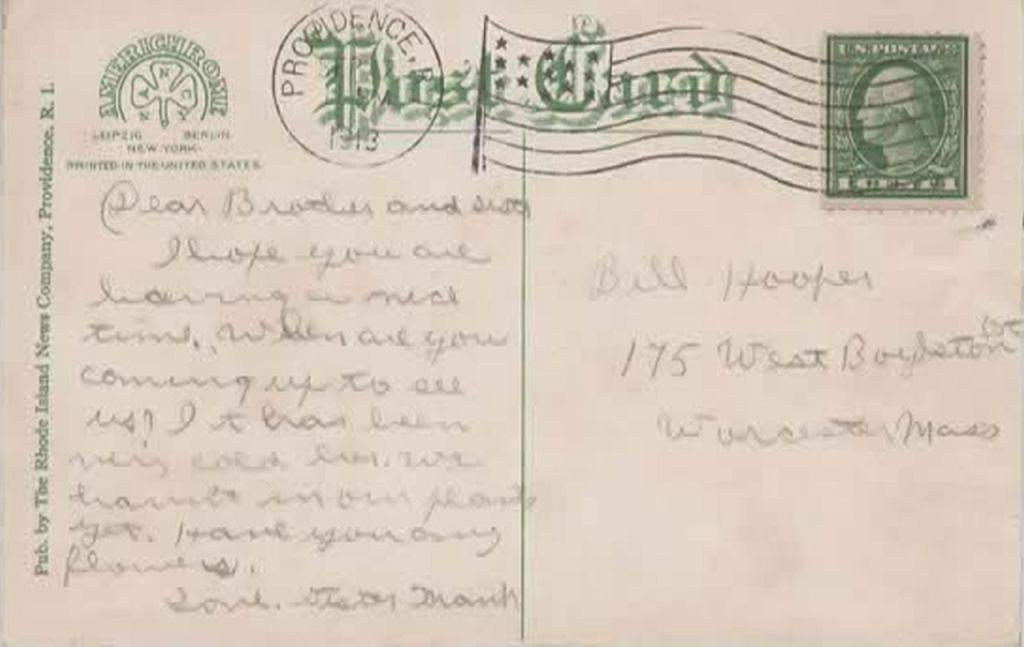 AMERICHROME
A N C Y
LEIPZIG BERLIN
NEW YORK
PRINTED IN THE UNITED STATES
Post Card
PROVIDENCE, R.I.
1913
U.S. POSTAGE
Pub. by The Rhode Island News Company, Providence, R. I.
Dear Brother and
I hope you are
having a nice
time. When are you
coming up to see
us? It has been
very cold here. We
havnt in our plants
yet. Have you any
flowers.
Love. Sister
Bill Hooper
175 West Boylston St
Worcester Mass